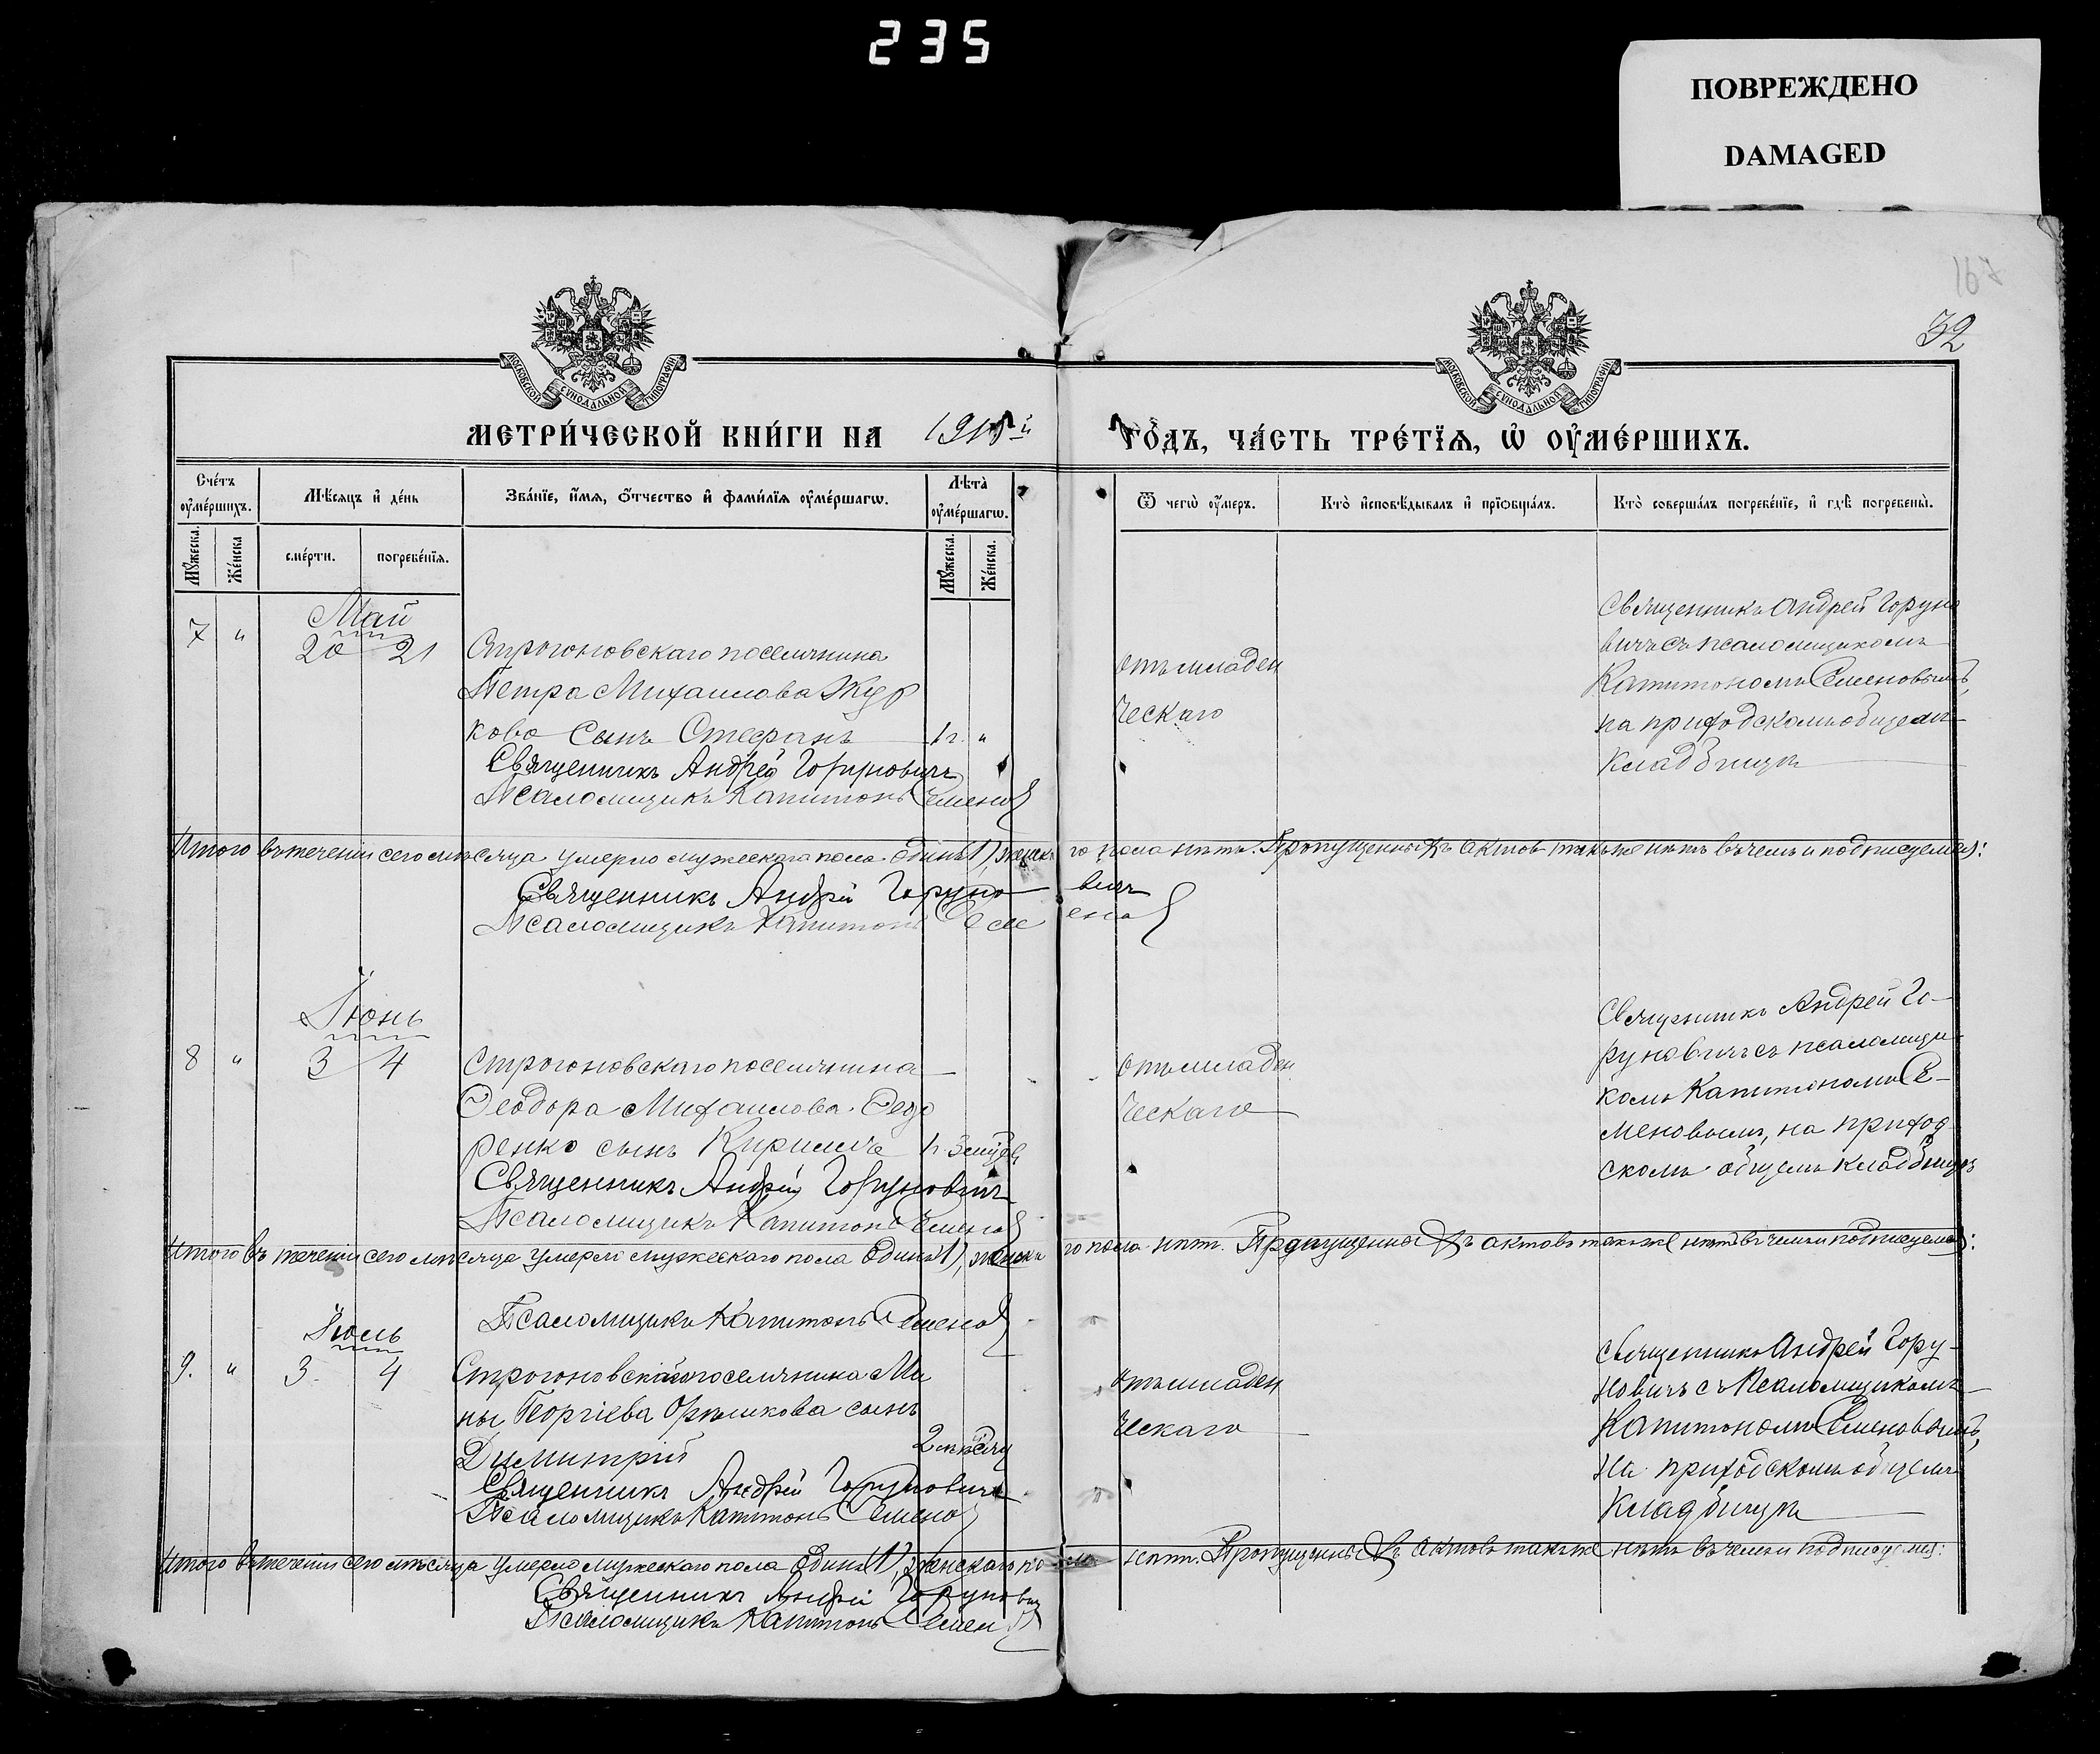 235
ПОВРЕЖДЕНО
DAMAGED
167
32
МОСКОВСКОЙ СѴНОДАЛЬНОЙ ТИПОГРАФІИ
МОСКОВСКОЙ СѴНОДАЛЬНОЙ ТИПОГРАФІИ
МЕТРИ́ЧЕСКОЙ КНИ́ГИ НА 1915й
ГО́ДЪ, ЧА́СТЬ ТРЕ́ТЇѦ, Ѡ ОУ҆МЕ́РШИХЪ.
Сче́тъ оу҆ме́ршихъ.
Мѣ́сѧцъ и҆ де́нь
Зва́нїе, и҆́мѧ, ѻ҆́тчество и҆ фами́лїѧ оу҆ме́ршагѡ.
Лѣта̀ оу҆ме́ршагѡ.
Ѿ чегѡ̀ оу҆́меръ.
Кто̀ и҆сповѣ́дывалъ и҆ прїѡбща́лъ.
Кто̀ соверша́лъ погребе́нїе, и҆ гдѣ̀ погребены̀.
Мꙋ́жеска.
Же́нска
сме́рти.
погребе́нїѧ.
Мꙋ́жеска.
Же́нска.
Май
7 " 20 21 Строгоновскаго поселянина
Петра Михаилова Жур
кова сынъ Стефанъ 1 г. "
Священникъ Андрей Горуновичъ
Псаломщикъ Капитонъ Семенов
отъ младен
ческаго
Священникъ Андрей Горуно
вичъ съ псаломщикомъ
Капитономъ Семеновымъ,
на приходскомъ общемъ
кладбищѣ
Итого въ теченіи сего мѣсяца умерло мужескаго пола одинъ 1), женска го пола нѣтъ. Пропущенныхъ актовъ также нѣтъ въ чемъ и подписуемся:
Священникъ Андрей Горуно вичъ
Псаломщикъ Капитонъ Сем енов
Іюнь
8 " 3 4 Строгоновскаго поселянина
Ѳеодора Михаилова Ѳедо
ренко сынъ Кириллъ
Священникъ Андрей Горуновичъ
Псаломщикъ Капитонъ Семенов
отъ младен
ческаго
Священникъ Андрей Го-
руновичъ съ псаломщи-
комъ Капитономъ Се-
меновымъ, на приход
скомъ общемъ кладбищѣ
Итого въ теченіи сего мѣсяца умерло мужескаго пола одинъ 1), женска го пола нѣтъ. Пропущенныхъ актовъ также нѣтъ въ чемъ и подписуемся:
Псаломщикъ Капитонъ Семенов
Іюль
9. " 3. 4 Строгоновскаго поселянина Ми
ны Георгіева Орѣшкова сынъ
Димитрій 2 мѣсяц
Священникъ Андрей Горуновичъ
Псаломщикъ Капитонъ Семенов
отъ младен
ческаго
Священникъ Андрей Гору-
новичъ съ Псаломщикомъ
Капитономъ Семеновымъ,
на приходскомъ общемъ
кладбищѣ
Итого въ теченіи сего мѣсяца умерло мужескаго пола одинъ 1), женскаго по ла нѣтъ. Пропущенныхъ актовъ также нѣтъ въ чемъ и подписуемся:
Священникъ Андрей Горунович
Псаломщикъ Капитонъ Семенов